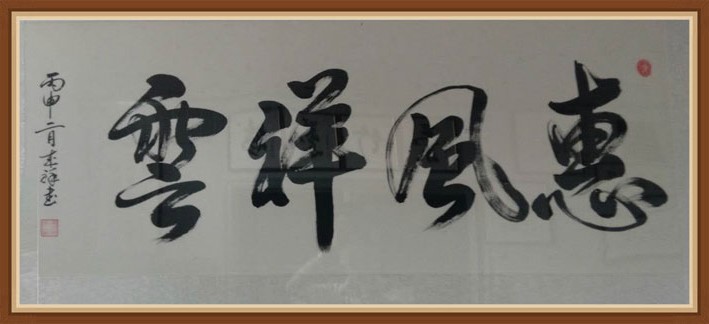 惠風祥雲
丙申二月東祥書